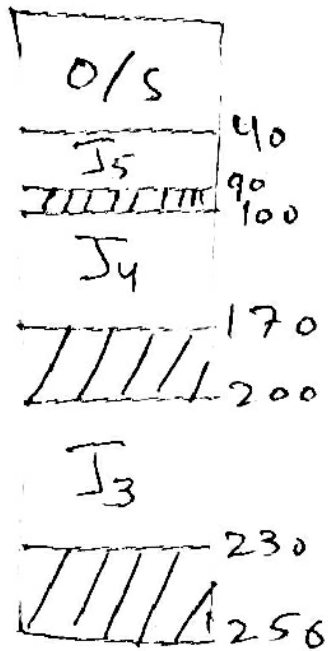 O/S
40
J5
90
100
J4
170
200
J3
230
256